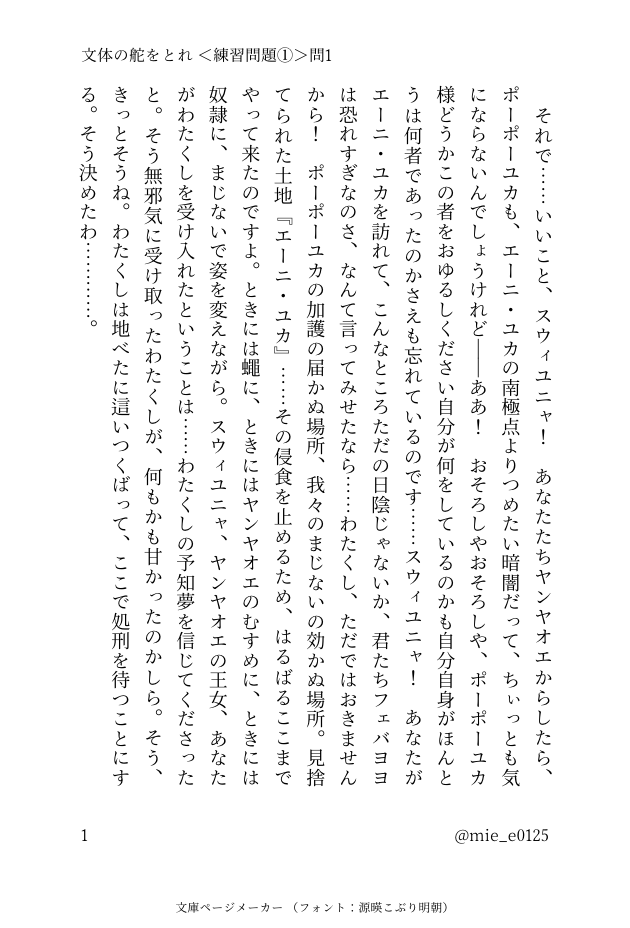 文体の舵をとれ ＜練習問題①＞問1
　それで……いいこと、スウィユニャ！　あなたたちヤンヤオエからしたら、
ポーポーユカも、エーニ・ユカの南極点よりつめたい暗闇だって、ちぃっとも気
にならないんでしょうけれど――ああ！　おそろしやおそろしや、ポーポーユカ
様どうかこの者をおゆるしください自分が何をしているのかも自分自身がほんと
うは何者であったのかさえも忘れているのです……スウィユニャ！　あなたが
エーニ・ユカを訪れて、こんなところただの日陰じゃないか、君たちフェバヨヨ
は恐れすぎなのさ、なんて言ってみせたなら……わたくし、ただではおきません
から！　ポーポーユカの加護の届かぬ場所、我々のまじないの効かぬ場所。見捨
てられた土地『エーニ・ユカ』……その侵食を止めるため、はるばるここまで
やって来たのですよ。ときには蠅に、ときにはヤンヤオエのむすめに、ときには
奴隷に、まじないで姿を変えながら。スウィユニャ、ヤンヤオエの王女、あなた
がわたくしを受け入れたということは……わたくしの予知夢を信じてくださった
と。そう無邪気に受け取ったわたくしが、何もかも甘かったのかしら。そう、
きっとそうね。わたくしは地べたに這いつくばって、ここで処刑を待つことにす
る。そう決めたわ…………。
1
@mie_e0125
文庫ページメーカー（フォント：源暎こぶり明朝）